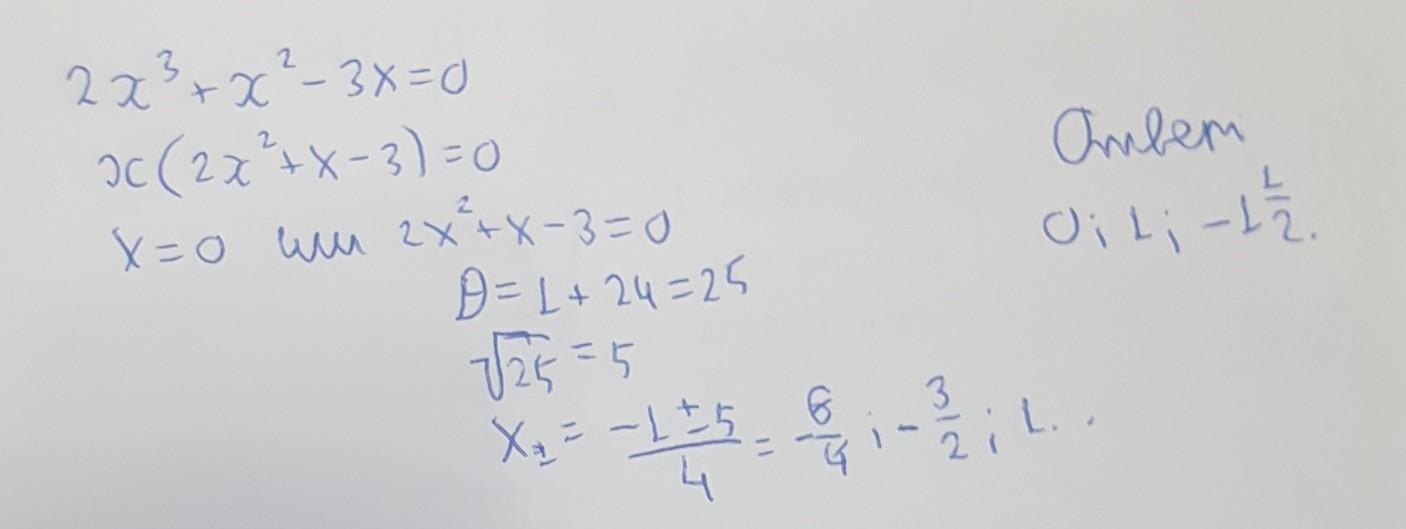 2x³+x²-3x=0
x(2x²+x-3)=0
x=0 или 2x²+x-3=0
D=1+24=25
√25=5
x±=(-1±5)/4=6/4;-3/2;1..
Ответ
0;1;-1 1/2.